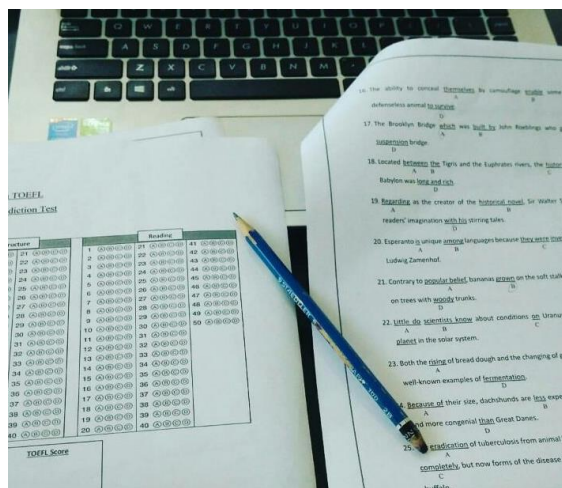 Q W E R T Y U I O P
A S D F G H J K L
Z X C V B N M
TOEFL
diction Test
ructure
Reading
21 A B C D
22 A B C D
23 A B C D
24 A B C D
25 A B C D
26 A B C D
27 A B C D
28 A B C D
29 A B C D
30 A B C D
31 A B C D
32 A B C D
33 A B C D
34 A B C D
35 A B C D
36 A B C D
37 A B C D
38 A B C D
39 A B C D
40 A B C D
1 A B C D 21 A B C D 41 A B C D
2 A B C D 22 A B C D 42 A B C D
3 A B C D 23 A B C D 43 A B C D
4 A B C D 24 A B C D 44 A B C D
5 A B C D 25 A B C D 45 A B C D
6 A B C D 26 A B C D 46 A B C D
7 A B C D 27 A B C D 47 A B C D
8 A B C D 28 A B C D 48 A B C D
9 A B C D 29 A B C D 49 A B C D
10 A B C D 30 A B C D 50 A B C D
11 A B C D 31 A B C D
12 A B C D 32 A B C D
13 A B C D 33 A B C D
14 A B C D 34 A B C D
15 A B C D 35 A B C D
16 A B C D 36 A B C D
17 A B C D 37 A B C D
18 A B C D 38 A B C D
19 A B C D 39 A B C D
20 A B C D 40 A B C D
TOEFL Score
16. The ability to conceal themselves by camouflage enable some
A B
defenseless animal to survive.
D
17. The Brooklyn Bridge which was built by John Roeblings who
A B
suspension bridge.
D
18. Located between the Tigris and the Euphrates rivers, the
A B C
Babylon was long and rich.
D
19. Regarding as the creator of the historical novel, Sir Walter
A B
readers' imagination with his stirring tales.
D
20. Esperanto is unique among languages because they were
A B C
Ludwig Zamenhof.
21. Contrary to popular belief, bananas grown on the soft
A B
on trees with woody trunks.
D
22. Little do scientists know about conditions on
A B C
planet in the solar system.
23. Both the rising of bread dough and the changing of
A
well-known examples of fermentation.
D
4. Because of their size, dachshunds are less
A B
nd more congenial than Great Danes.
D
25. eradication of tuberculosis from animal
A
completely, but now forms of the disease
C